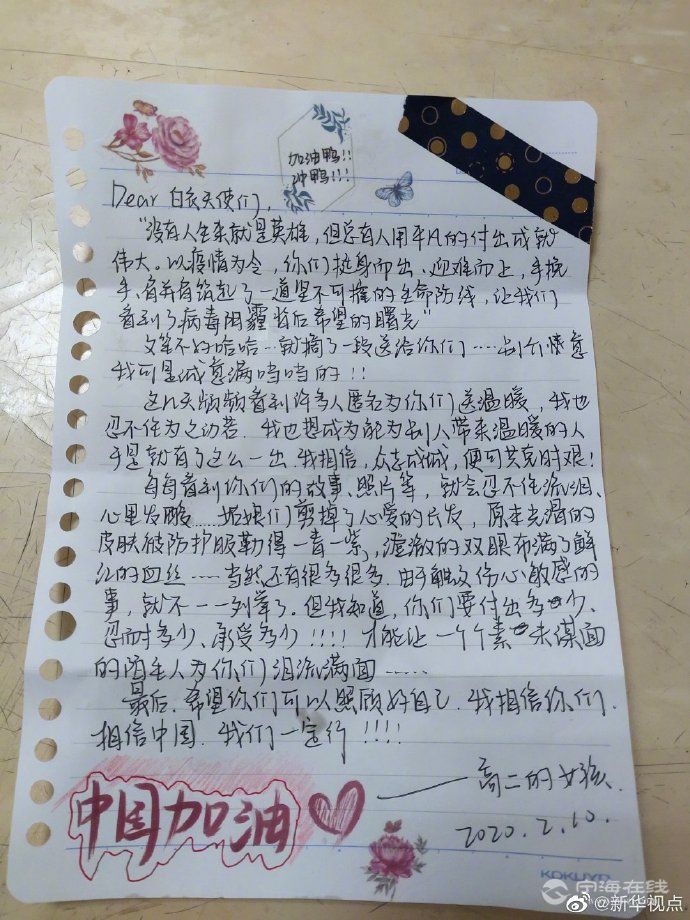 加油鸭!!
冲鸭!!!
Dear 白衣天使们,
"没有人生来就是英雄,但总有人用平凡的付出成就
伟大。以疫情为令,你们挺身而出、迎难而上,手挽
手、肩并肩筑起了一道坚不可摧的生命防线,让我们
看到了病毒阴霾背后希望的曙光"
文笔不好哈哈…就摘了一段送给你们……别介意
我可是诚意满当当的!!
这几天频频看到许多人匿名为你们送温暖,我也
忍不住为之动容。我也想成为能为别人带来温暖的人
于是就有了这么一出.我相信,众志成城,便可共克时艰!
每每看到你们的故事、照片等,就会忍不住流泪、
心里发酸……姑娘们剪掉了心爱的长发,原本光滑的
皮肤被防护服勒得一青一紫,澄澈的双眼布满了鲜
红的血丝……当然还有很多很多.由于触及伤心敏感的
事,就不一一列举了.但我知道,你们要付出多少、
忍耐多少、承受多少!!!!才能让一个个素未谋面
的陌生人为你们泪流满面……
最后.希望你们可以照顾好自己.我相信你们.
相信中国.我们一定行!!!!
——高二的女孩.
2020.2.10.
中国加油
KOKUYO
宁海在线
@新华视点